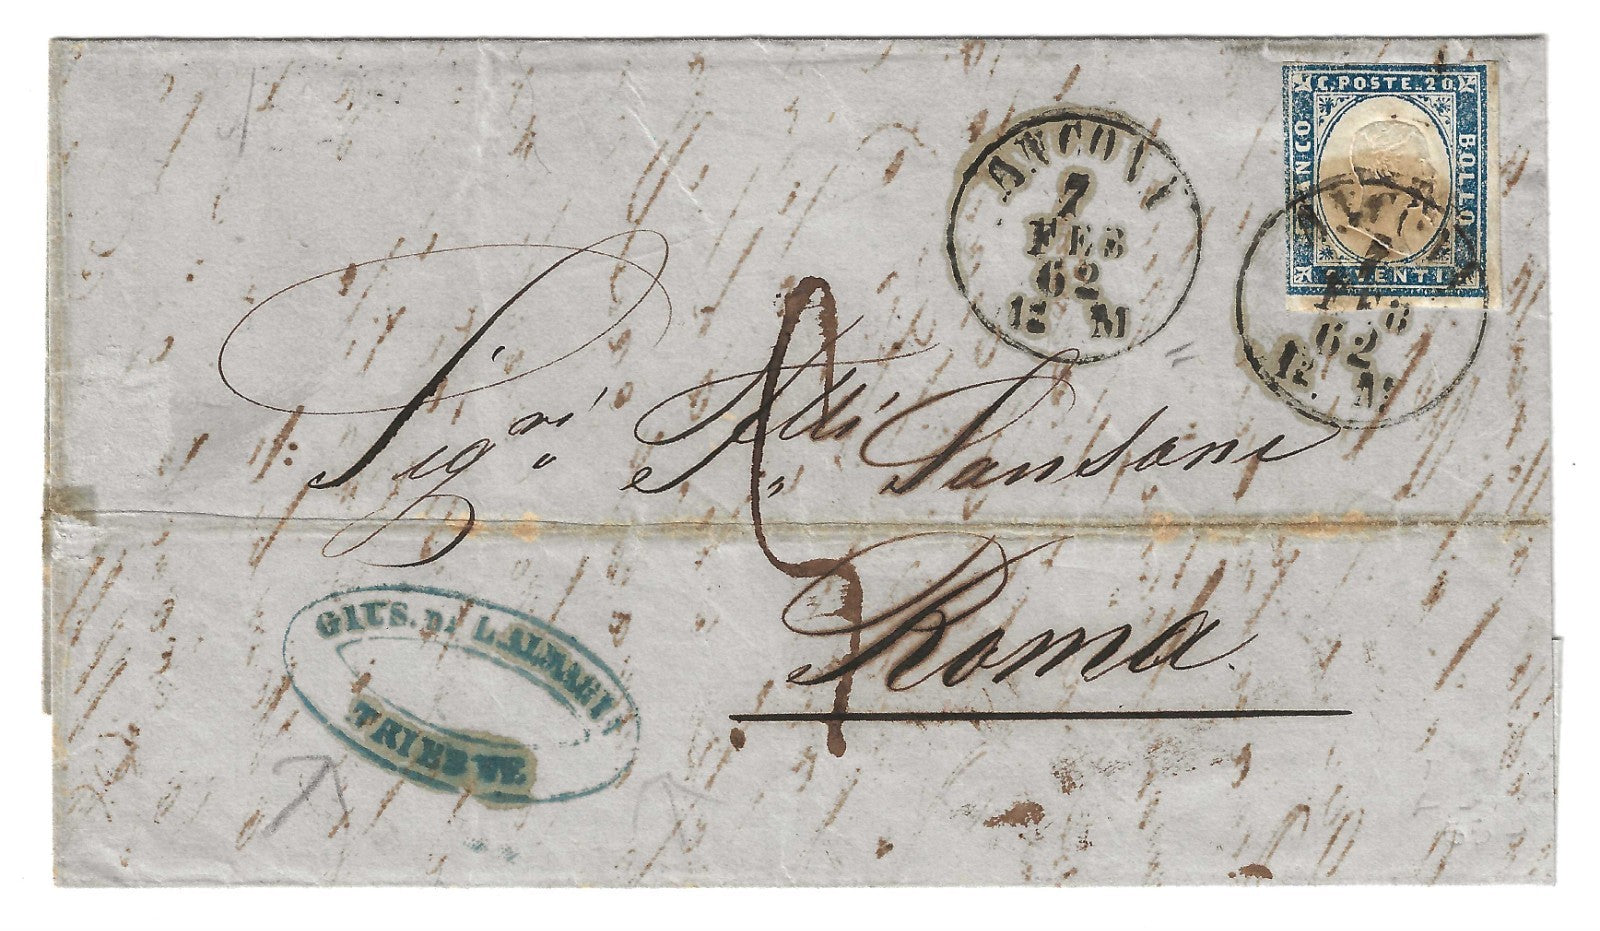 C. POSTE. 20
FRANCO
BOLLO
C. VENTI
ANCONA
7
FEB
62
12 M
ANCONA
7
FEB
62
12 M
Sig.ri Flli Sansoni
Roma
GIUS. DI L. ALMAGIÀ
TRIESTE